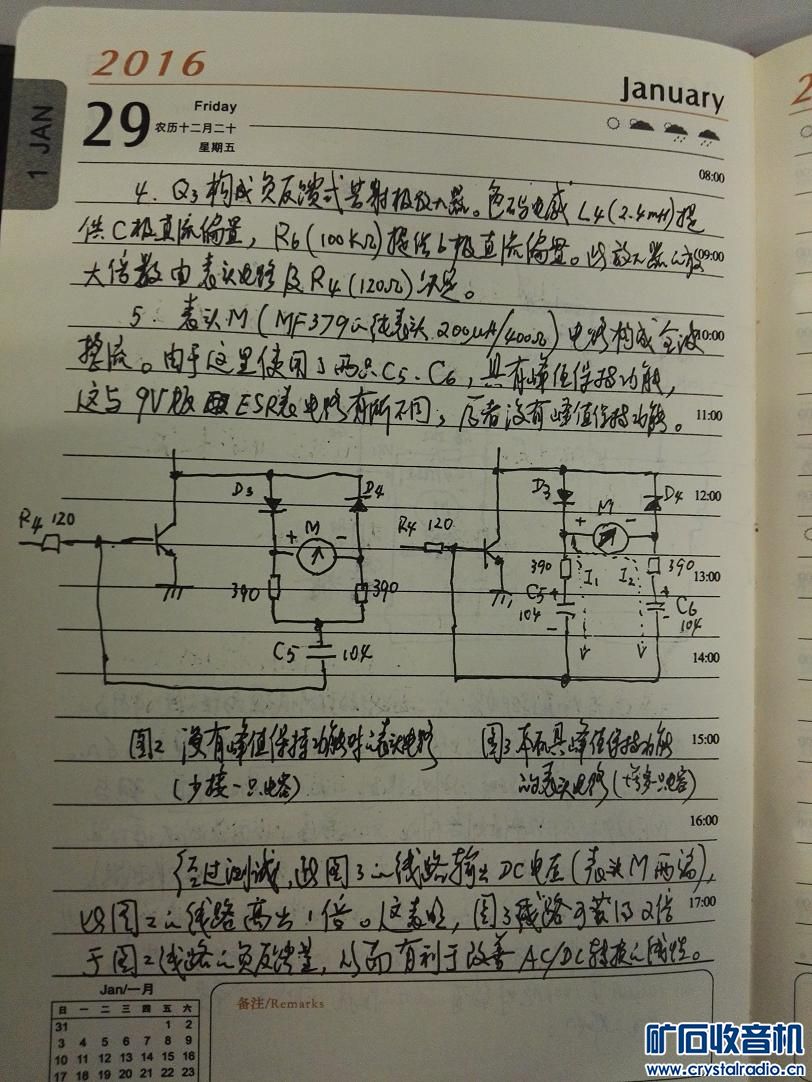 2016
January
29
Friday
农历十二月二十
星期五
1 JAN
08:00
4. Q3构成负反馈式共射极放大器。色码电感L4(2.4mH)提
供C极直流偏置，R6(100KΩ)提供b极直流偏置。此放大器的放
09:00
大倍数由表头电路及R4(120Ω)决定。
5. 表头M(MF379的纯表头 200uA/400Ω)电路构成全波
10:00
整流。由于这里使用了两只C5、C6，具有峰值保持功能，
这与9V版ESR表电路有所不同，后者没有峰值保持功能。
11:00
D3
D4
R4 120
+ M -
390
390
C5
104
D3
D4
12:00
R4 120
+ M -
390
390
13:00
I1
I2
C5 +
104
+
-
C6
104
14:00
图2 没有峰值保持功能时的表头电路
(少接一只电容)
图3 本机具峰值保持功能
的表头电路(增多一只电容)
15:00
16:00
经过测试，此图3的线路输出DC电压(表头M两端)，
以图2的线路高出1倍。这表明，图3线路可获得2倍
17:00
于图2线路的负反馈量，从而有利于改善AC/DC转换的线性。
Jan/一月
日 一 二 三 四 五 六
31 1 2
3 4 5 6 7 8 9
10 11 12 13 14 15 16
17 18 19 20 21 22 23
备注/Remarks
矿石收音机
www.crystalradio.cn